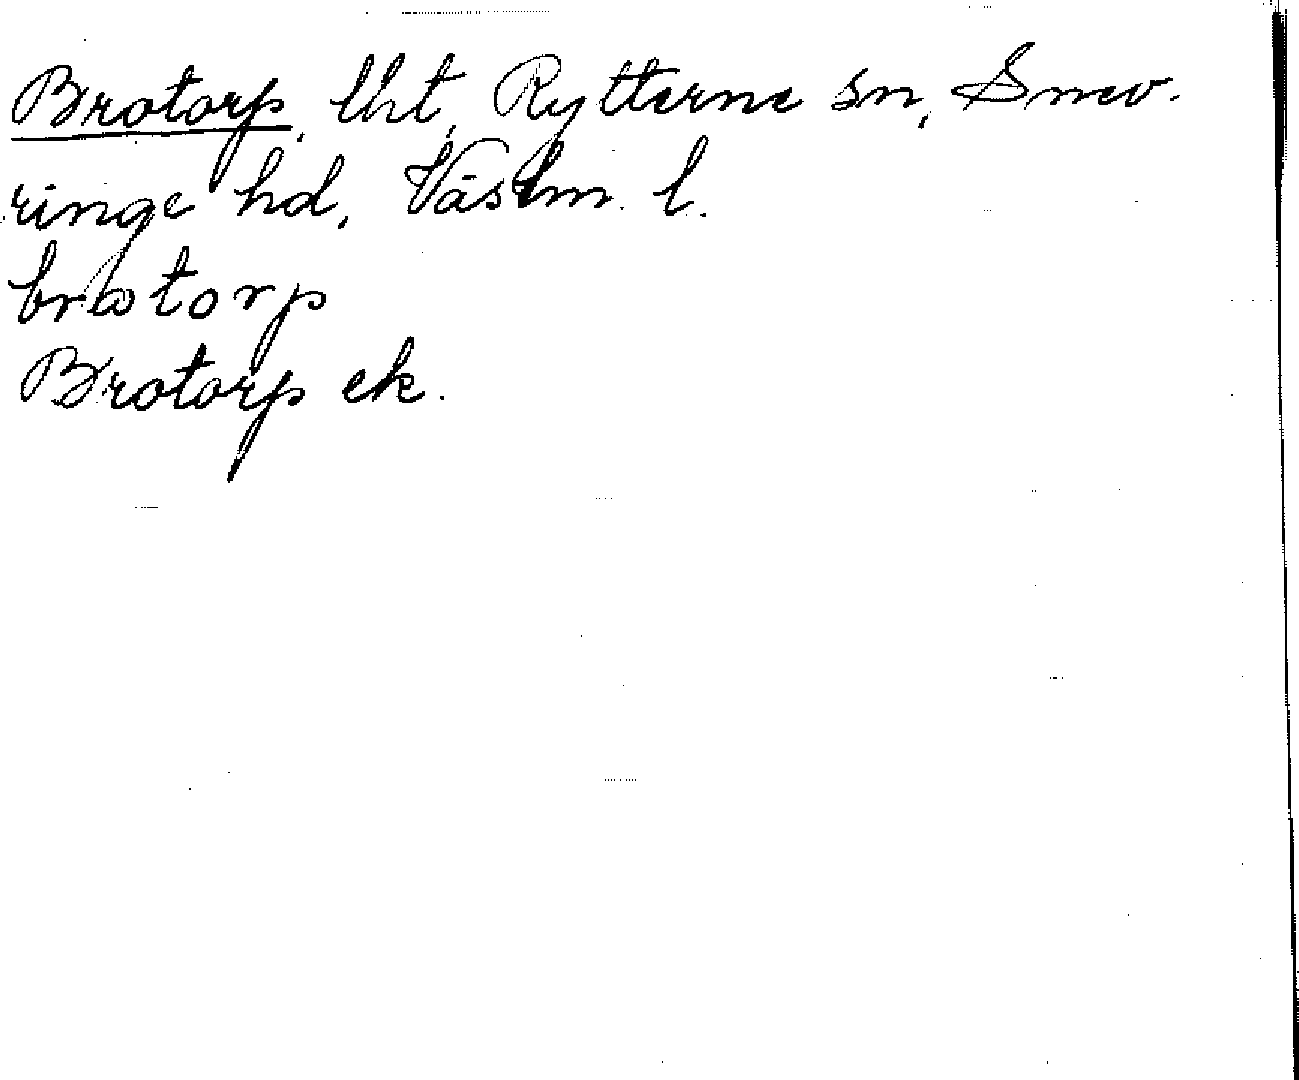 Brotorp, lht, Rytterne sn, Snev.
ringe hd, Väsˈtm. l.
brωtorp
Brotorp ek.